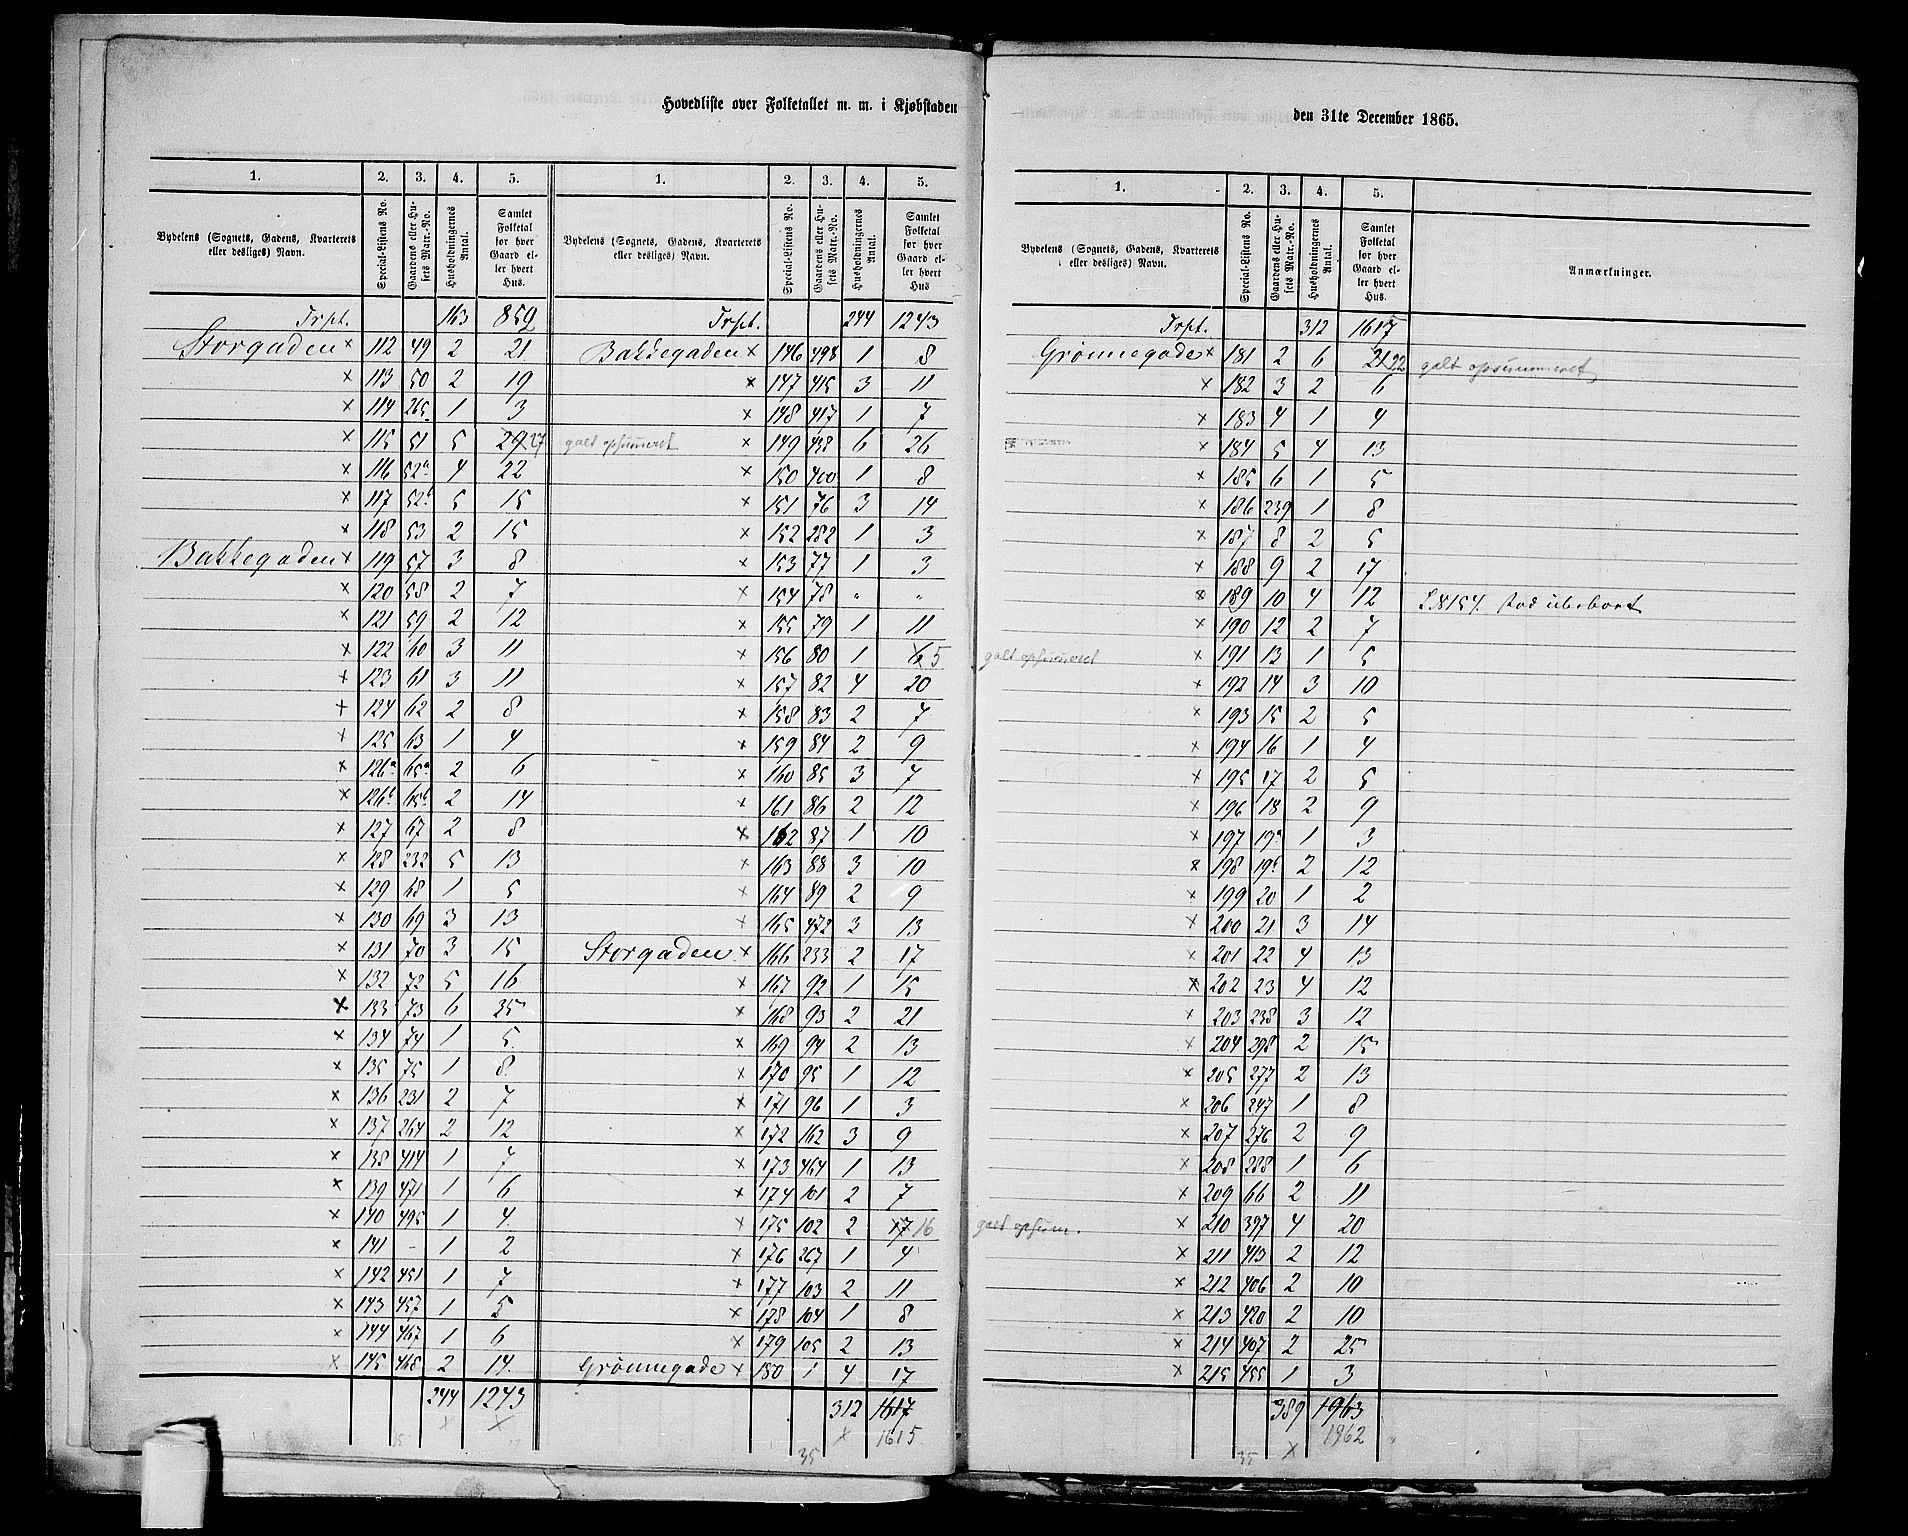 Hovedliste over Folketallet m. m. i Kjøbstaden
1. 2. 3. 4. 5. 1. 2. 3. 4. 5.
Bydelens (Sognets, Gadens, Kvarterets eller desliges) Navn. Special-Listens No. Gaardens eller Husets Matr.-No. Husholdningernes Antal. Samlet Folketal for hver Gaard eller hvert Hus. Bydelens (Sognets, Gadens, Kvarterets eller desliges) Navn. Special-Listens No. Gaardens eller Husets Matr.-No. Husholdningernes Antal. Samlet Folketal for hver Gaard eller hvert Hus
Trpt. 163 859 Trpt. 244 1243
Storgaden × 112 49 2 21 Bakkegaden × 146 498 1 8
× 113 50 2 19 × 147 415 3 11
× 114 265. 1 3 × 148 417 1 7
× 115 51 5 29 27 galt opsumeret × 149 438 6 26
× 116 52a 4 22 × 150 400 1 8
× 117 52b 5 15 × 151 76 3 14
× 118 53 2 15 × 152 282 1 3
Bakkegaden × 119 57 3 8 × 153 77 1 3
× 120 58 2 7 × 154 78 " "
× 121 59 2 12 × 155 79 1 11
× 122 60 3 11 × 156 80 1 6 5
× 123 61 3 11 × 157 82 4 20
× 124 62 2 8 × 158 83 2 7
× 125 63 1 4 × 159 84 2 9
× 126a 65a 2 6 × 160 85 3 7
× 126b 65b 2 14 × 161 86 2 12
× 127 67 2 8 × 162 87 1 10
× 128 232 5 13 × 163 88 3 10
× 129 68 1 5 × 164 89 2 9
× 130 69 3 13 × 165 472 3 13
× 131 70 3 15 Storgaden × 166 233 2 17
× 132 72 5 16 × 167 92 1 15
× 133 73 6 35 × 168 93 2 21
× 134 74 1 5 × 169 94 2 13
× 135 75 1 8 × 170 95 1 12
× 136 231 2 7 × 171 96 1 3
× 137 264 2 12 × 172 162 3 9
× 138 414 1 7 × 173 464 1 13
× 139 471 1 6 × 174 101 2 7
× 140 495 1 4 × 175 102 2 17 16
× 141 - 1 2 × 176 267 1 4
× 142 451 1 7 × 177 103 2 11
× 143 457 1 5 × 178 104 1 8
× 144 467 1 6 × 179 105 2 13
× 145 468 2 14 Grønnegade × 180 1 4 17
244 1243 312 1617
× × × 1615
35
den 31te December 1865.
1. 2. 3. 4. 5.
Bydelens (Sognets, Gadens, Kvarterets eller desliges) Navn. Special-Listens No. Gaardens eller Husets Matr.-No. Husholdningernes Antal. Samlet Folketal for hver Gaard eller hvert Hus. Anmærkninger.
Trpt. 312 1617
Grønnegade × 181 2 6 21 22 galt opsummeret
× 182 3 2 6
× 183 4 1 4
× 184 5 4 13
× 185 6 1 5
× 186 239 1 8
× 187 8 2 5
× 188 9 2 17
× 189 10 4 12 154.
× 190 12 2 7
galt opsumeret × 191 13 1 5
× 192 14 3 10
× 193 15 2 5
× 194 16 1 4
× 195 17 2 5
× 196 18 2 9
× 197 19a 1 3
× 198 19b 2 12
× 199 20 1 2
× 200 21 3 14
× 201 22 4 13
× 202 23 4 12
× 203 238 3 12
× 204 298 2 15
× 205 277 2 13
× 206 247 1 8
× 207 276 2 9
× 208 288 1 6
× 209 66 2 11
galt opsum. × 210 397 4 20
× 211 413 2 12
× 212 406 2 10
× 213 420 2 10
× 214 407 2 25
× 215 455 1 3
389 1963
× 1962
35